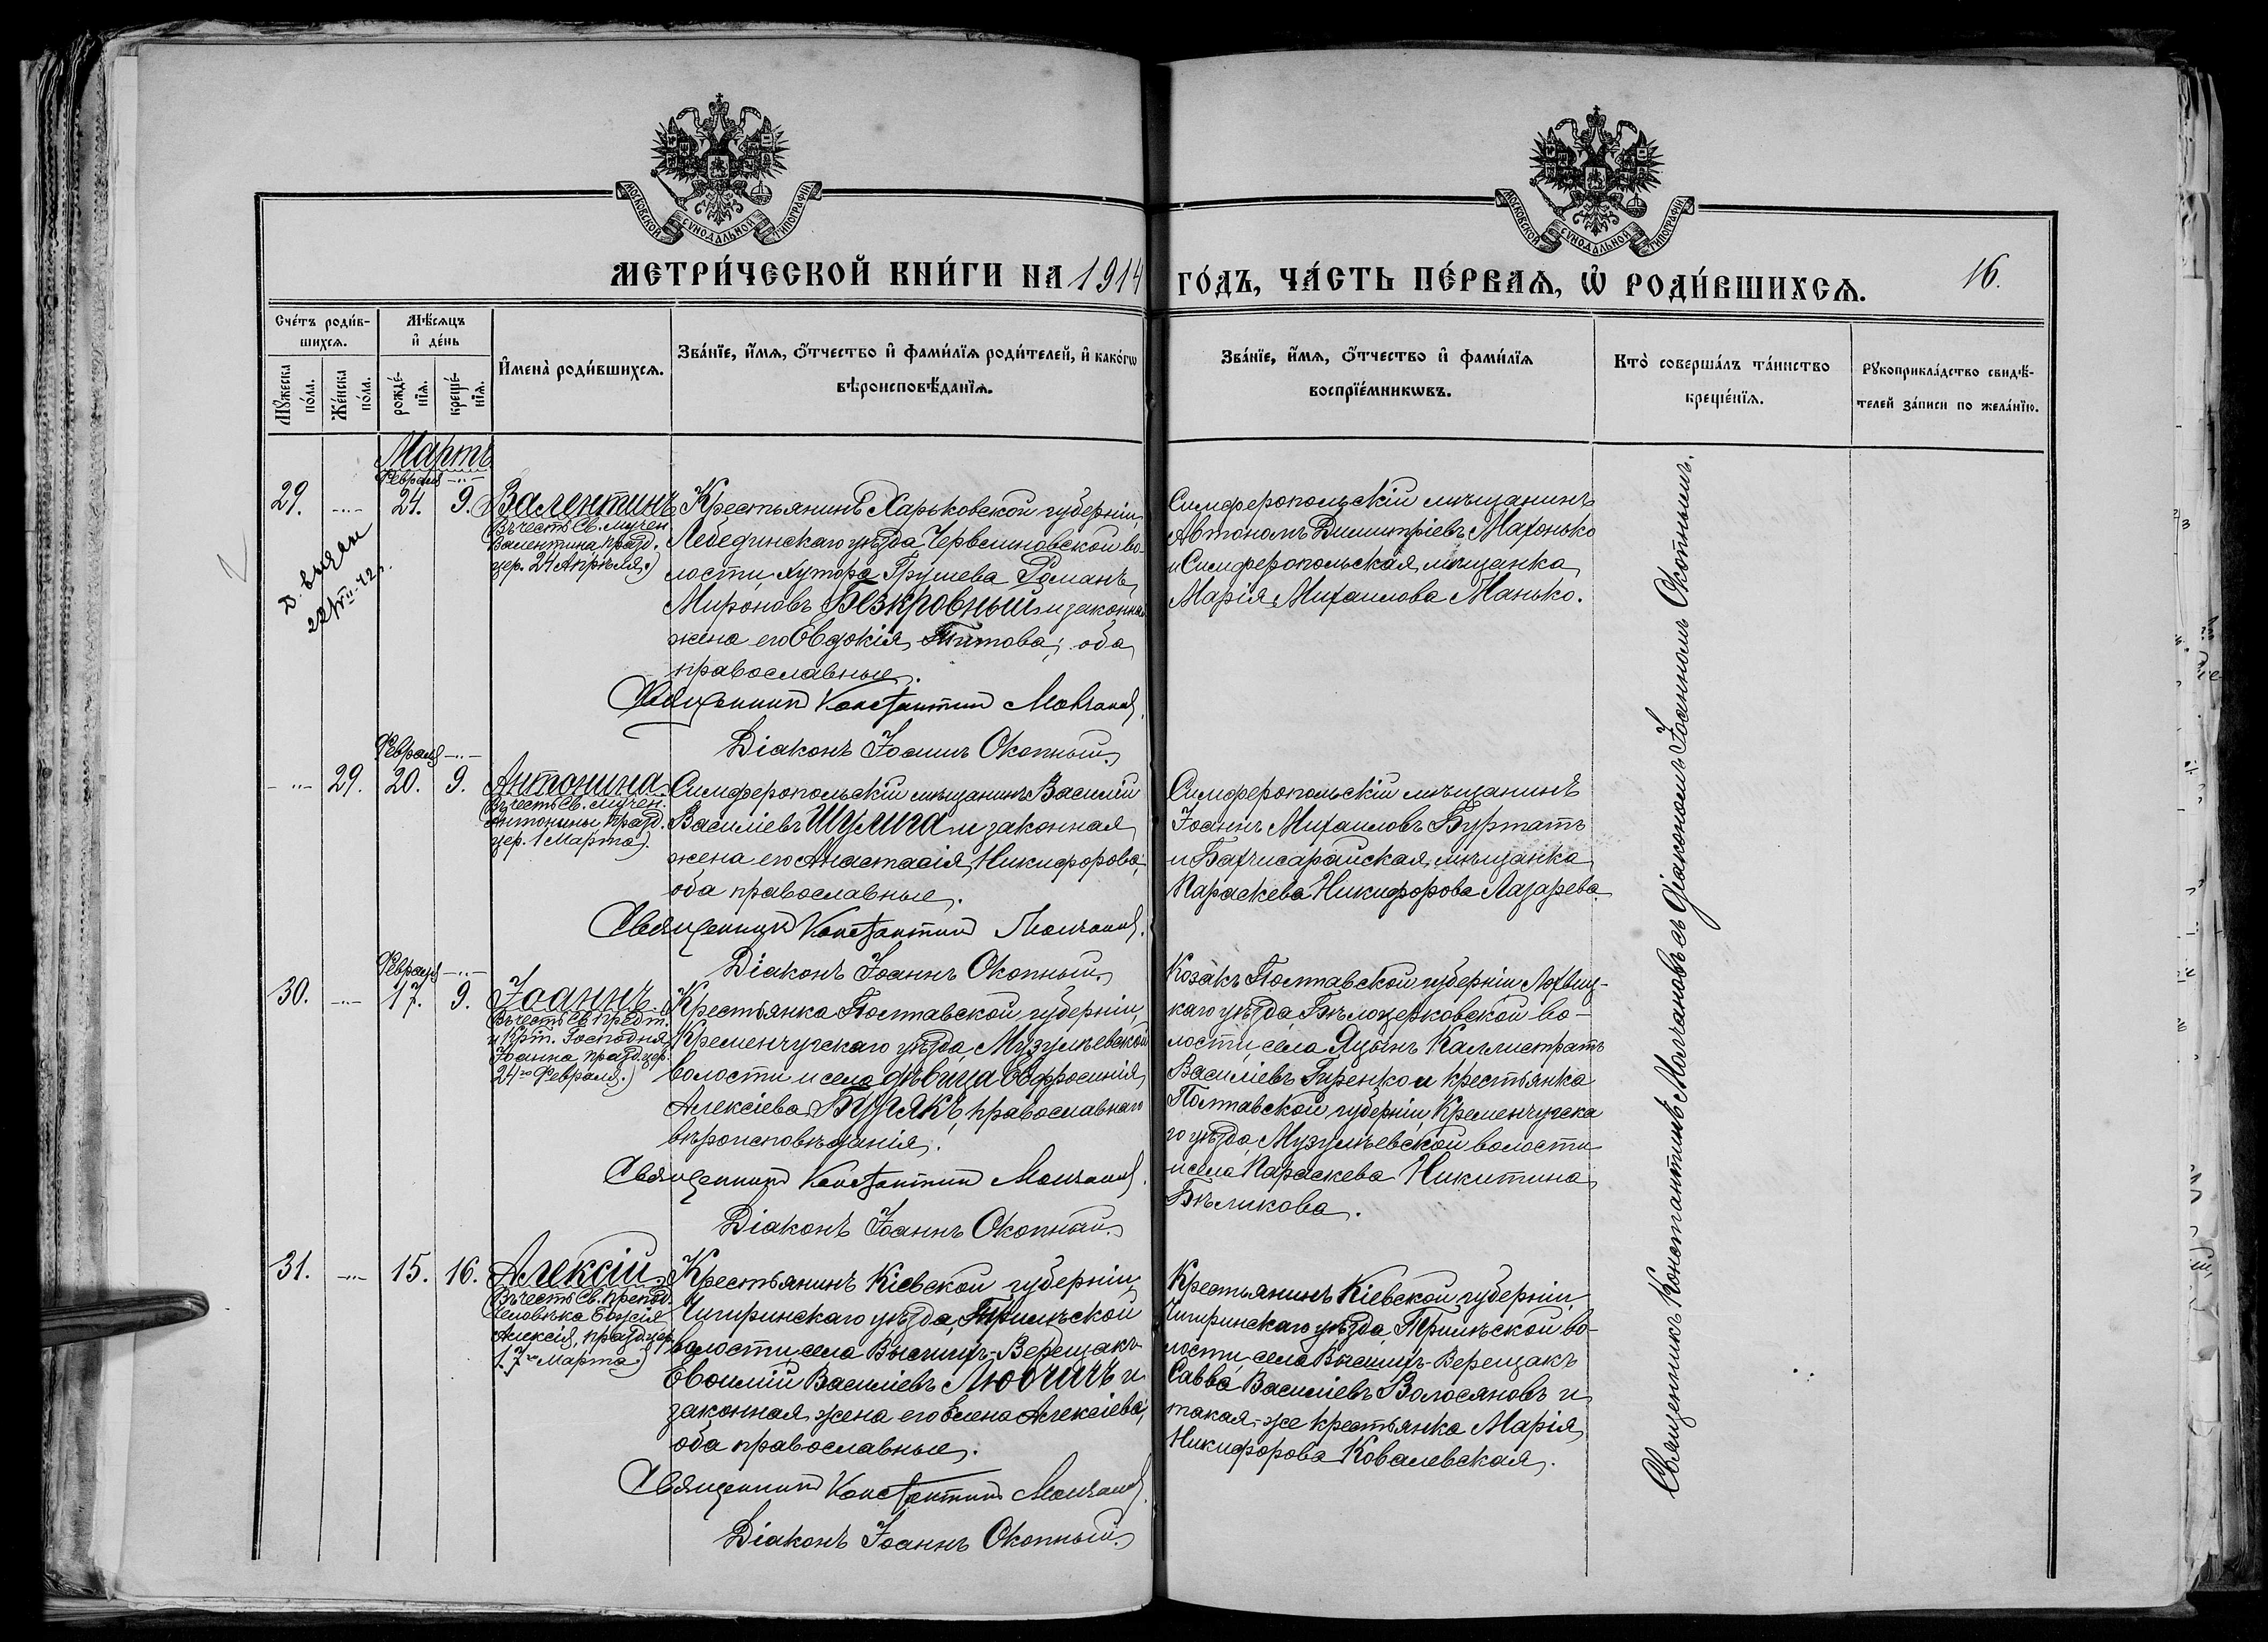 МОСКОВСКОЙ СѴНОДАЛЬНОЙ ТИПОГРАФІИ
МОСКОВСКОЙ СѴНОДАЛЬНОЙ ТИПОГРАФІИ
МЕТРИ́ЧЕСКОЙ КНИ́ГИ НА 1914 ГО́ДЪ, ЧА́СТЬ ПЕ́РВАѦ, Ѡ҆ РОДИ́ВШИХСѦ.
16.
Сче́тъ роди́в-
шихсѧ.
Мѣ́сѧцъ
и҆ де́нь
Мꙋ́жеска
по́ла.
Же́нска
по́ла.
рожде́-
нїѧ.
креще́-
нїѧ.
И҆мена̀ роди́вшихсѧ.
Зва́нїе, и҆́мѧ, ѻ҆́тчество и҆ фами́лїѧ роди́телей, и҆ како́гѡ
вѣроисповѣ́данїѧ.
Зва́нїе, и҆́мѧ, ѻ҆́тчество и҆ фами́лїѧ
воспрїе́мникѡвъ.
Кто̀ соверша́лъ та́инство
креще́нїѧ.
Рꙋкоприкла́дство свидѣ́-
телей за́писи по жела́нїю.
Мартъ
Февраля -..-
29. -..- 24. 9. Валентинъ
(Въ честь Св. мучен.
Валентина празд.
цер. 24 Апрѣля.)
Крестьянинъ Харьковской губерніи,
Лебединскаго уѣзда, Червлиновской во-
лости, хутора Грушева Романъ
Мироновъ Безкровный и законная
жена его Евдокія Титова; оба
православные.
Священникъ Константинъ Молчановъ.
Діаконъ Іоаннъ Окопный.
Симферопольскій мѣщанинъ
Автономъ Димитріевъ Махонько
и Симферопольская мѣщанка
Марія Михаилова Манько.
Д. выдан
Февраля -..-
-..- 29. 20. 9. Антонина
(Въ честь Св. мучен.
Антонины празд.
цер. 1 Марта).
Симферопольскій мѣщанинъ Василій
Василіевъ Шулига и законная
жена его Анастасія Никифорова,
оба православные.
Священникъ Константинъ Молчановъ.
Діаконъ Іоаннъ Окопный.
Симферопольскій мѣщанинъ
Іоаннъ Михаиловъ Бурматъ
и Бахчисарайская мѣщанка
Параскева Никифорова Лазарева.
Февраля -..-
30. -..- 17. 9. Іоаннъ
(Въ честь Св. Предт.
и Крт. Господня
Іоанна празд. цер.
24го Февраля.)
Крестьянка Полтавской губерніи,
Кременчугскаго уѣзда, Музулѣевской
волости и села дѣвица Евфросинія
Алексіева Бугякъ, православнаго
вѣроисповѣданія.
Священникъ Константинъ Молчановъ.
Діаконъ Іоаннъ Окопный.
Козакъ Полтавской губерніи Лохвиц-
каго уѣзда, Бѣлоцерковской во-
лости, села Яцынъ Каллистратъ
Василіевъ Гиренко и крестьянка
Полтавской губерніи, Кременчугска
го уѣзда, Музулѣевской волости
и села Параскева Никитина
Бѣликова.
31. -..- 15. 16. Алексій
(Въ честь Св. препод.
Человѣка Божія
Алексія, празд. цер.
17го Марта)
Крестьянинъ Кіевской губерніи,
Чигиринскаго уѣзда, Трилѣской
волости села Высшихъ-Верещакъ
Евѳимій Василіевъ Любчичъ и
законная жена его Елена Алексіева,
оба православные.
Священникъ Константинъ Молчановъ.
Діаконъ Іоаннъ Окопный.
Крестьянинъ Кіевской губерніи,
Чигиринскаго уѣзда, Трилѣской во-
лости, села Высшихъ-Верещакъ
Савва Василіевъ Волосяновъ и
такая-же крестьянка Марія
Никифорова Ковалевская.
Священникъ Константинъ Молчановъ съ діакономъ Іоанномъ Окопнымъ.